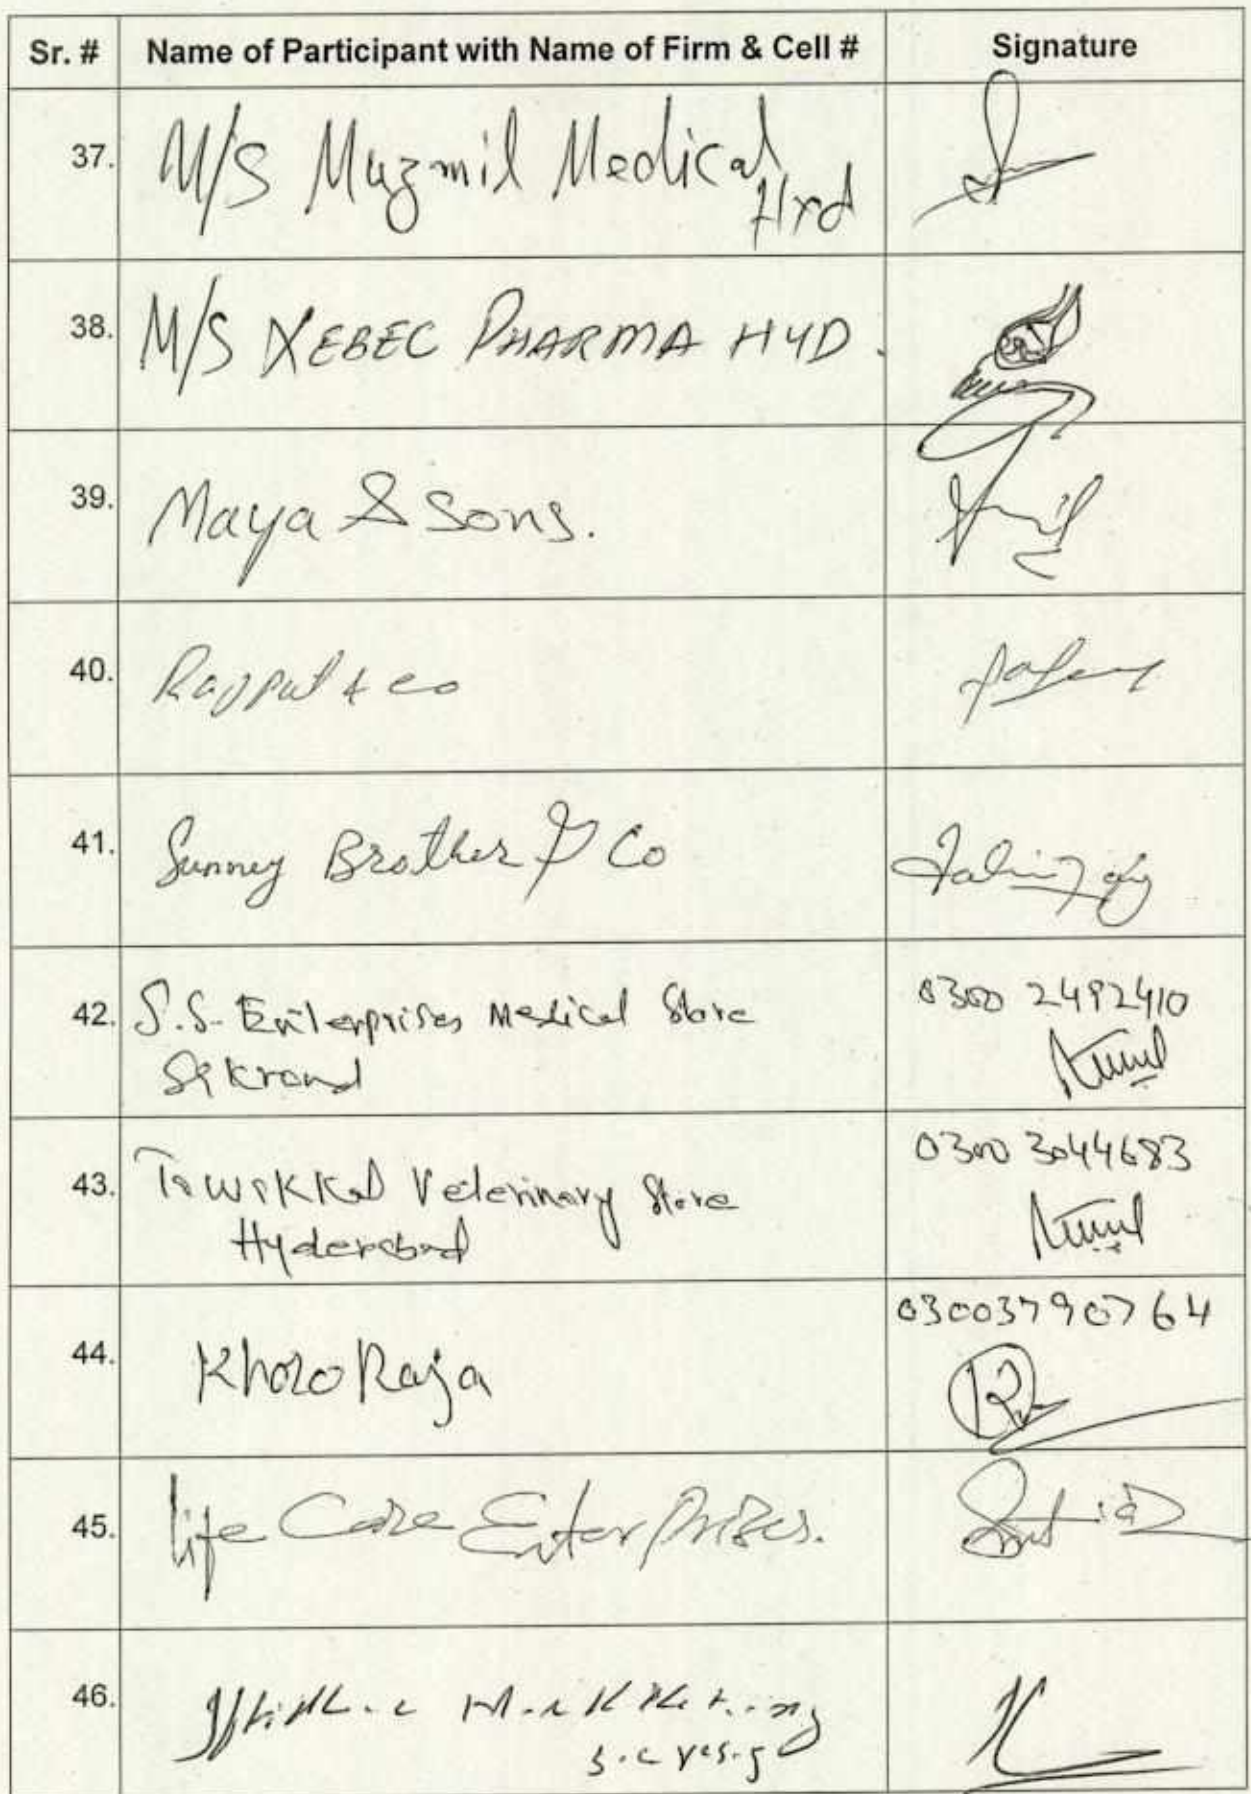 Sr. # Name of Participant with Name of Firm & Cell # Signature
37. M/S Muzmil Medical
Hyd
38. M/S XEBEC PHARMA HYD.
39. Maya & Sons.
40. Rajput & co
41. Sunney Brother & Co
42. S.S. Enterprises Medical Store 0300 2492410
Sakrand
43. Tawakkal Veterinary Store 0300 3044683
Hyderabad
44. Khoro Raja 03003790764
45. life Care Enterprises.
46.